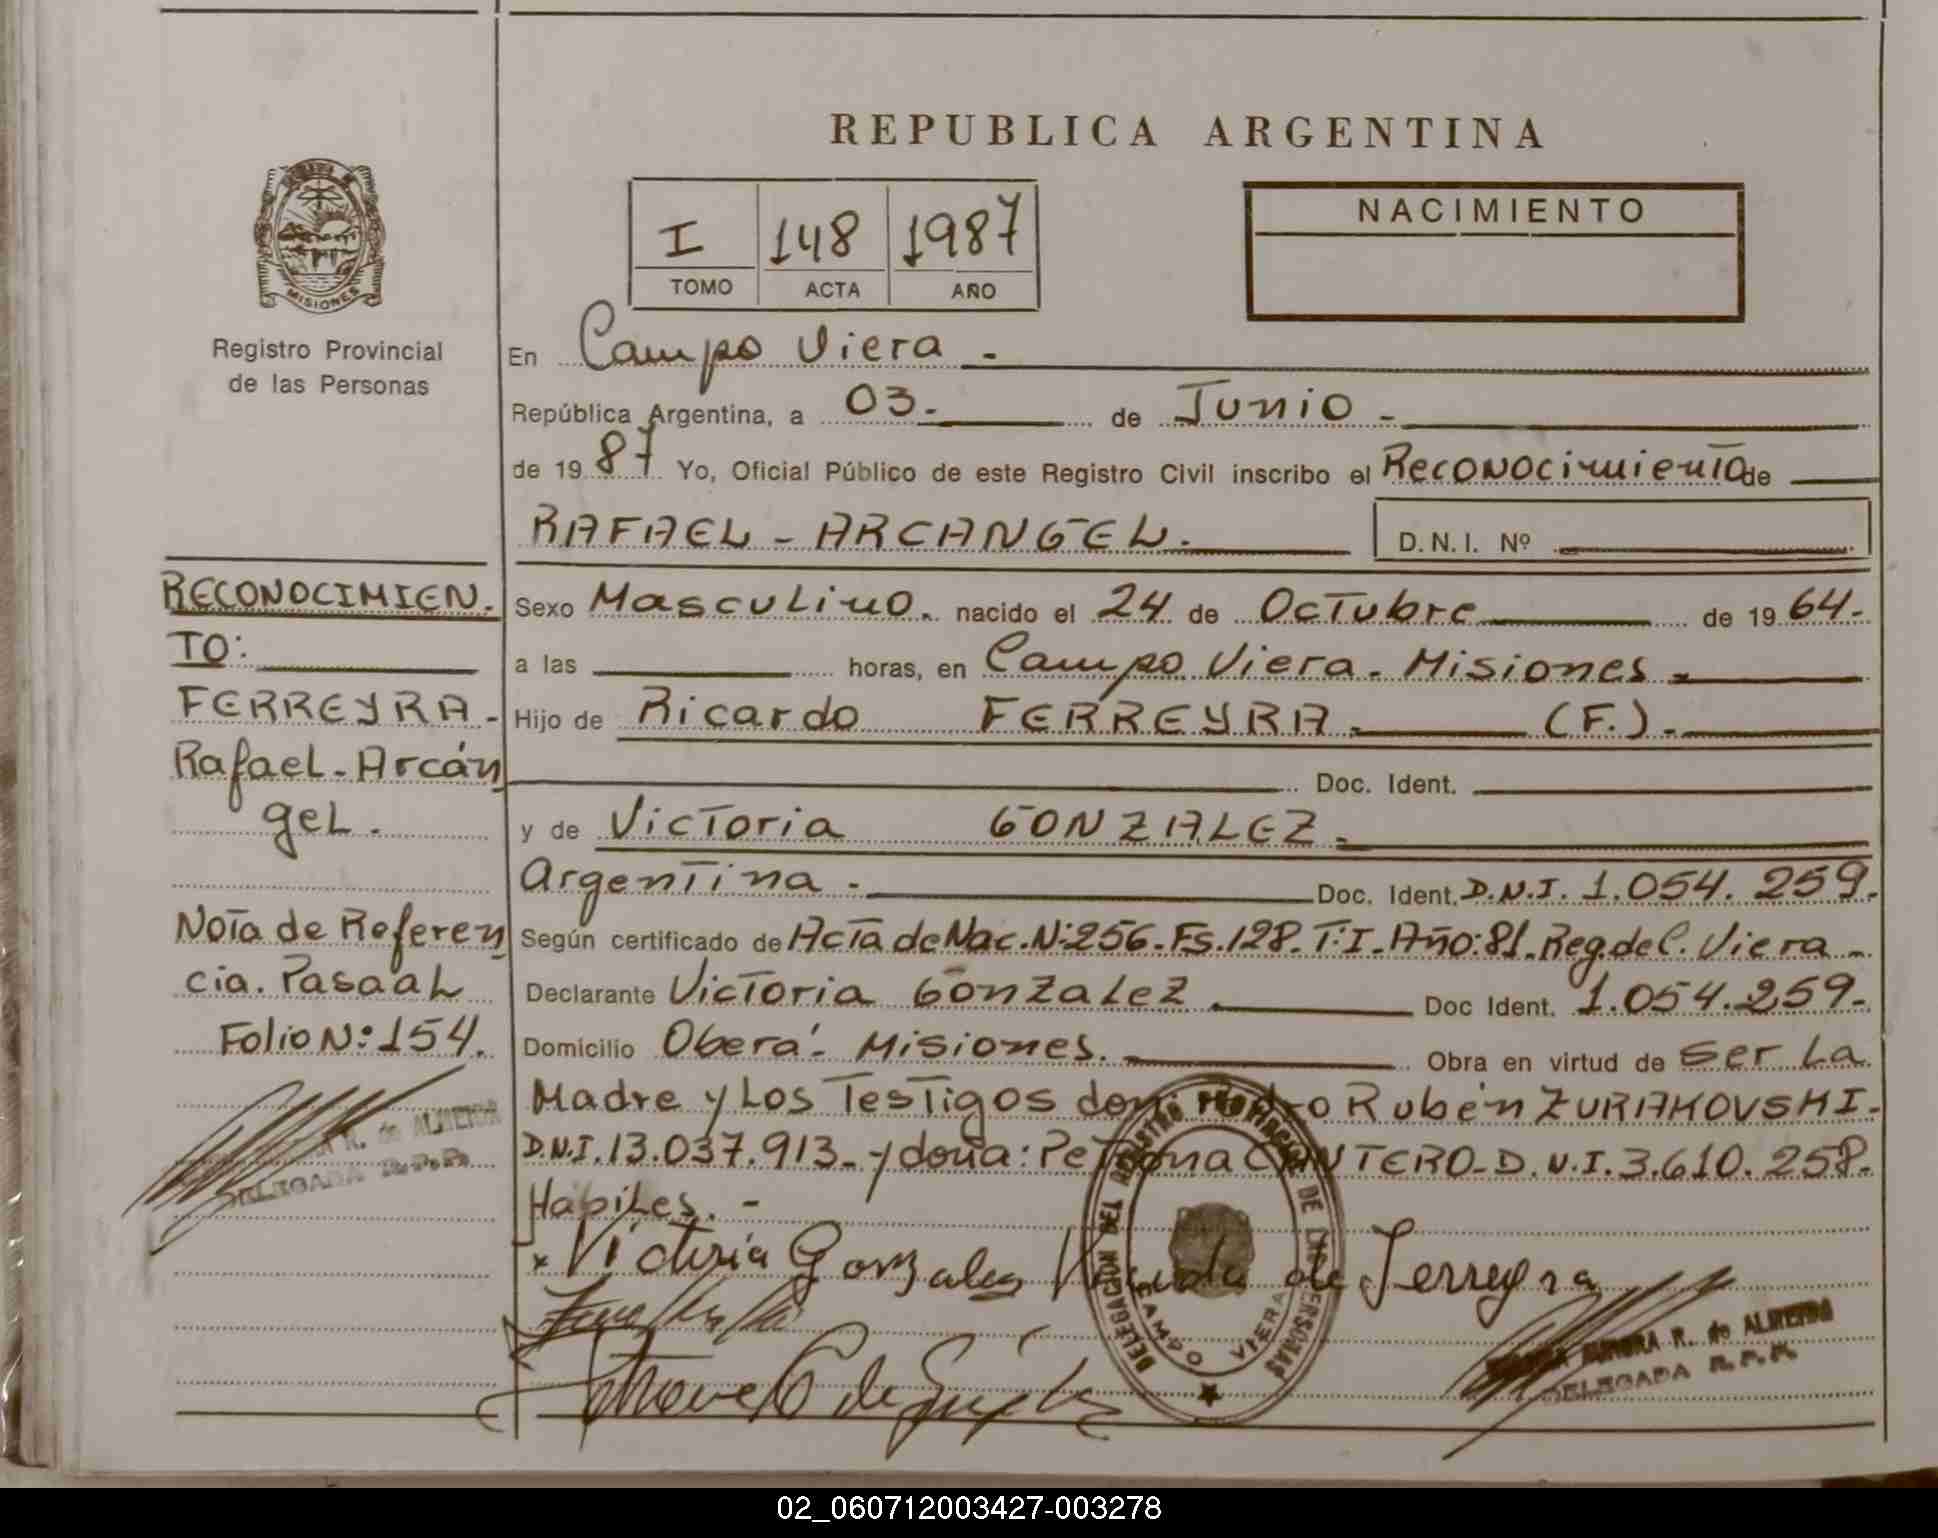 REPUBLICA ARGENTINA
I 148 1987
TOMO ACTA AÑO
NACIMIENTO
MISIONES
Registro Provincial
de las Personas
En Campo Viera -
República Argentina, a 03. de Junio -
de 19 87 Yo, Oficial Público de este Registro Civil inscribo el Reconocimiento de
RAFAEL - ARCANGEL. D.N.I. Nº
Sexo Masculino. nacido el 24 de Octubre de 19 64-
a las horas, en Campo Viera. Misiones -
Hijo de Ricardo FERREYRA. (F.).
Doc. Ident.
y de Victoria GONZALEZ.
Argentina - Doc. Ident. D.N.I. 1.054.259.
Según certificado de Acta de Nac. Nº:256. Fs. 128. T:I. Año:81. Reg. de C. Viera -
Declarante Victoria GonzaLez. Doc Ident. 1.054.259-
Domicilio Oberá - Misiones. Obra en virtud de ser La
Madre y Los Testigos don: Pedro Rubén ZURAKOVSKI-
D.N.I. 13.037.913 - y doña: Petrona CANTERO - D.N.I. 3.610.258-
Habiles. -
RECONOCIMIEN-
TO:
FERREYRA -
Rafael - Arcán
gel.
Nota de Referen
cia. Pasa al
Folio Nº:154.
R. de ALMEIDA
DELEGADA R.P.P.
x Victoria Gonzales Viuda de Ferreyra
DELEGACION DEL REGISTRO PROVINCIAL DE LAS PERSONAS
CAMPO VIERA
AURORA R. de ALMEIDA
DELEGADA R.P.P.
02_060712003427-003278